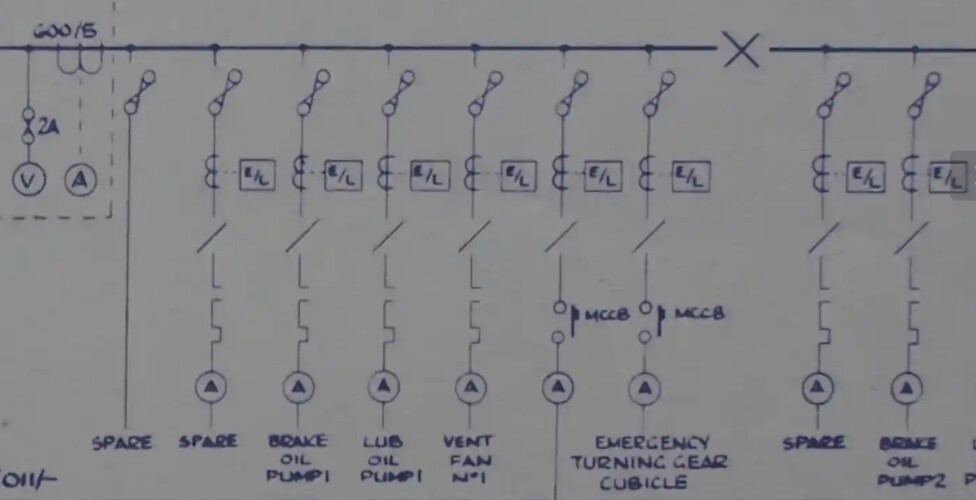 600/5
2A
V
A
E/L
E/L
E/L
E/L
E/L
E/L
E/L
E/L
MCCB
MCCB
A
A
A
A
A
A
A
A
SPARE
SPARE
BRAKE
OIL
PUMP1
LUB
OIL
PUMP1
VENT
FAN
Nº1
EMERGENCY
TURNING GEAR
CUBICLE
SPARE
BRAKE
OIL
PUMP2
011/-